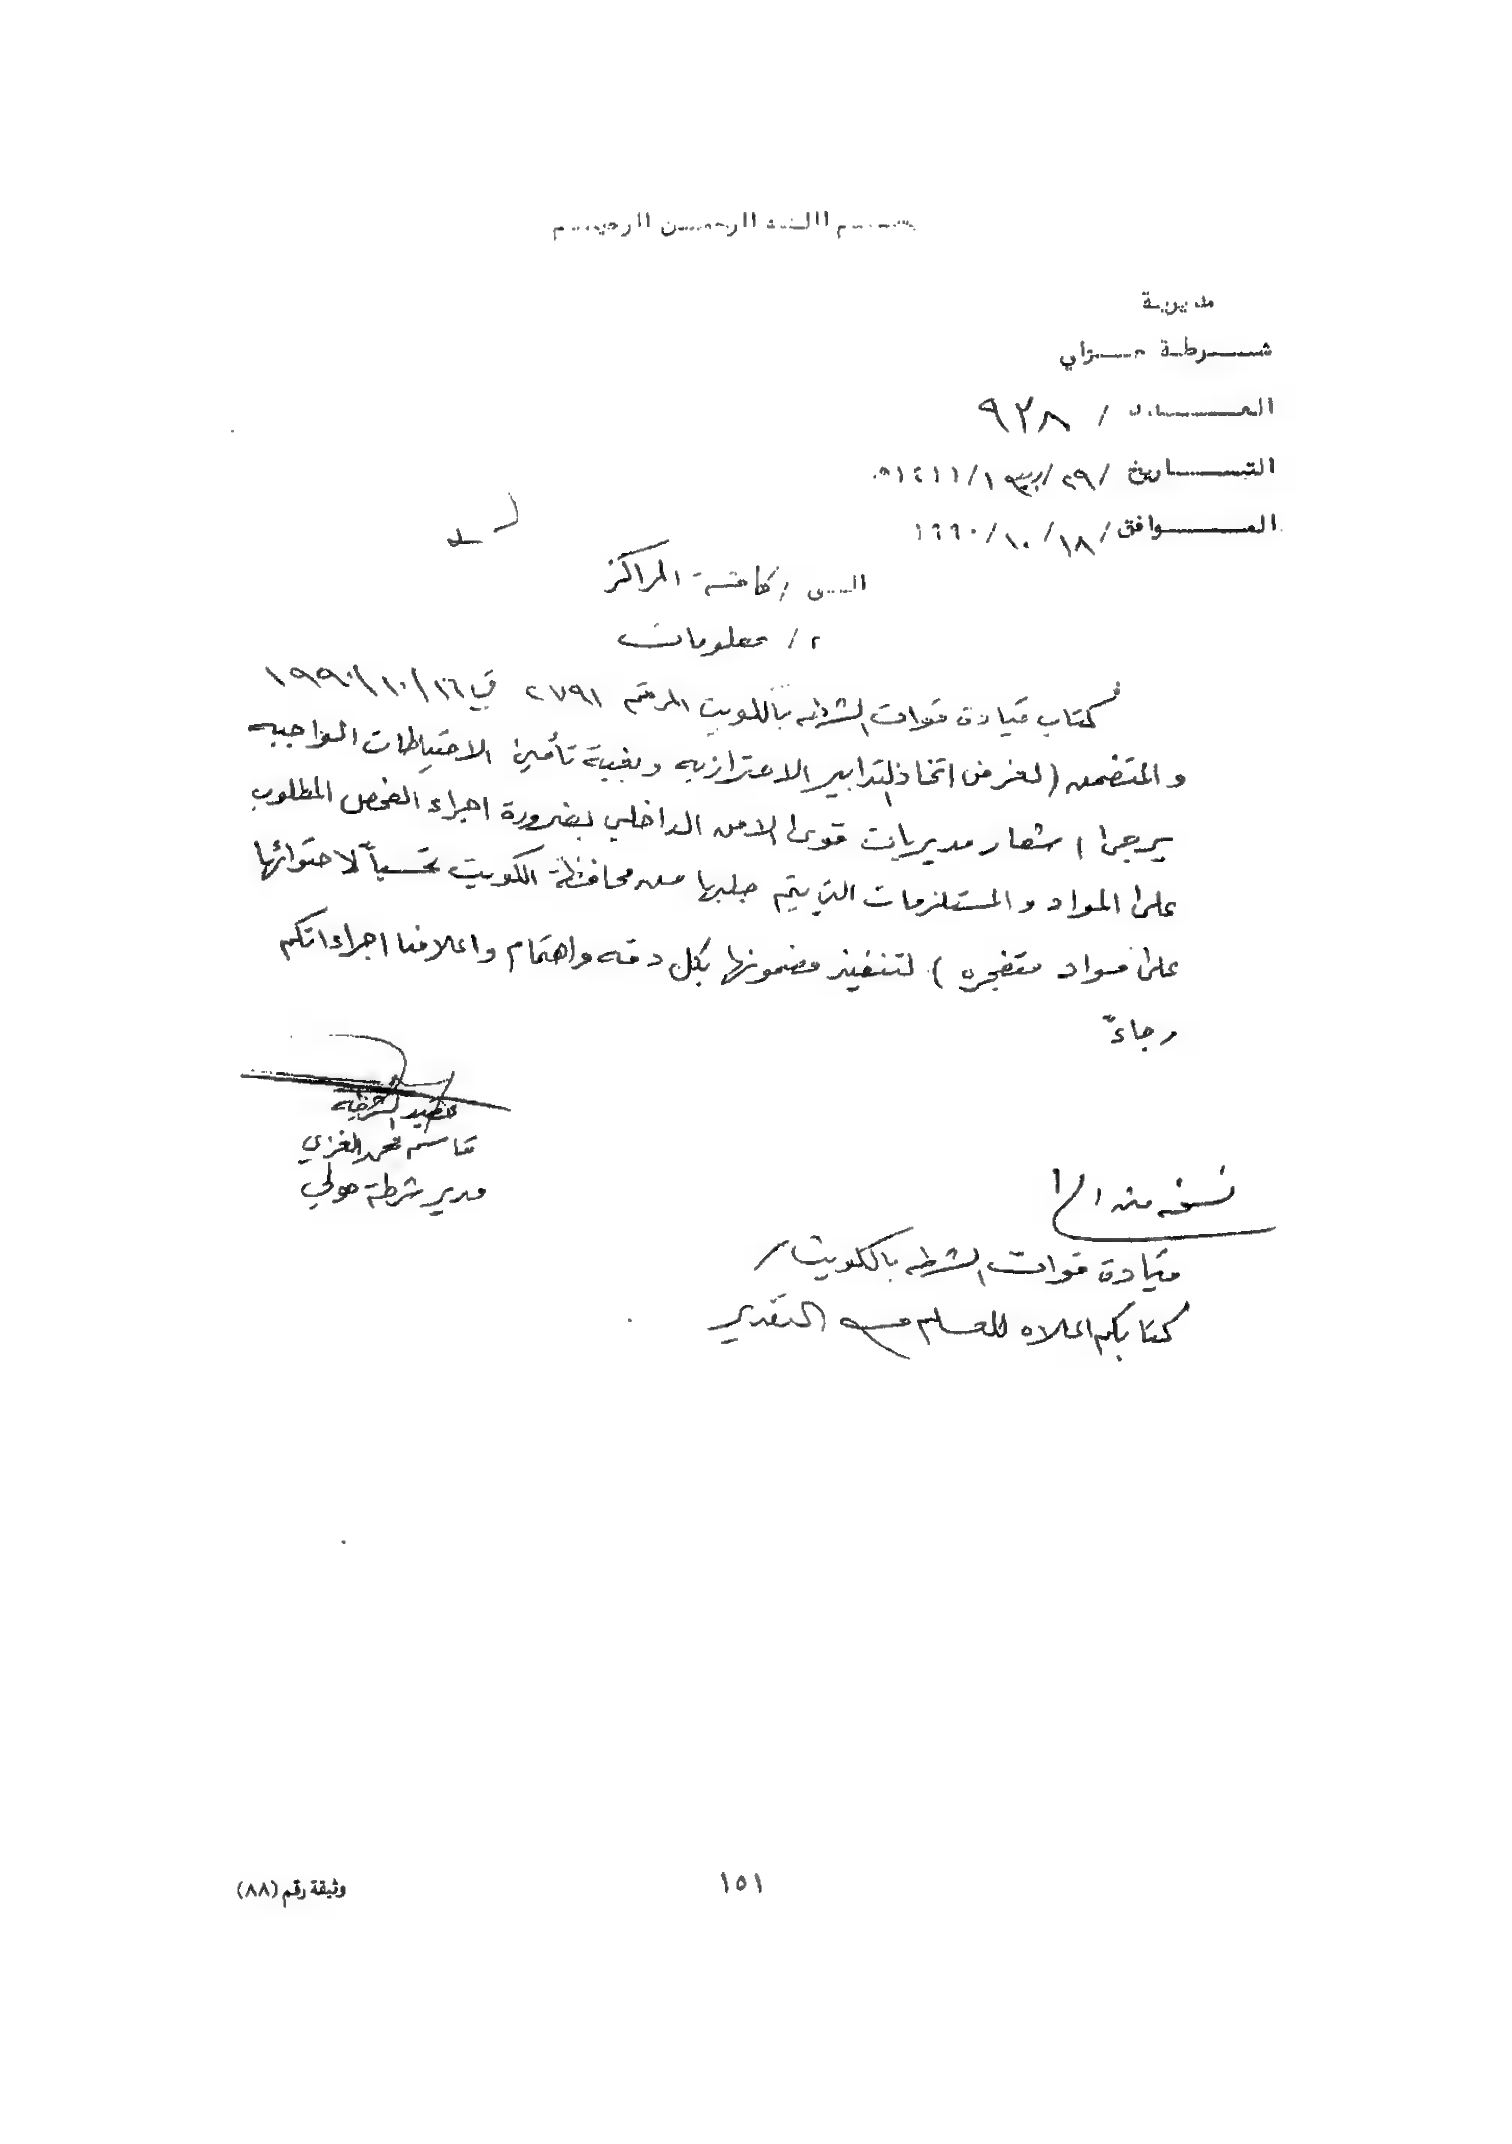 بسم الله الرحمن الرحيم
مديرية
شرطة حولي
العدد / ٩٢٨
التاريخ / ٢٩/ربيع ١/١٤١١ه
الموافق / ١٨/١٠/١٩٩٠
الى / كافة المراكز
م / معلومات
كتاب قيادة قوات الشرطه بالكويت المرقم ٢٧٩١ في ١٦/١٠/١٩٩٠
والمتضمن (لغرض اتخاذ التدابير الاحترازيه وبغية تأمين الاحتياطات الواجبه
يرجى اشعار مديريات قوى الامن الداخلي بضرورة اجراء الفحص المطلوب
على المواد والمستلزمات التي يتم جلبها من محافظة الكويت تحسباً لاحتوائها
على مواد متفجره ) لتنفيذ مضمونها بكل دقه واهتمام واعلامنا اجراءاتكم
رجاءً
عقيد الشرطه
قاسم محمد الغزي
مدير شرطة حولي
نسخه منه الى /
قيادة قوات الشرطه بالكويت /
كتابكم اعلاه للعلم مع التقدير
١٥١
وثيقة رقم (٨٨)